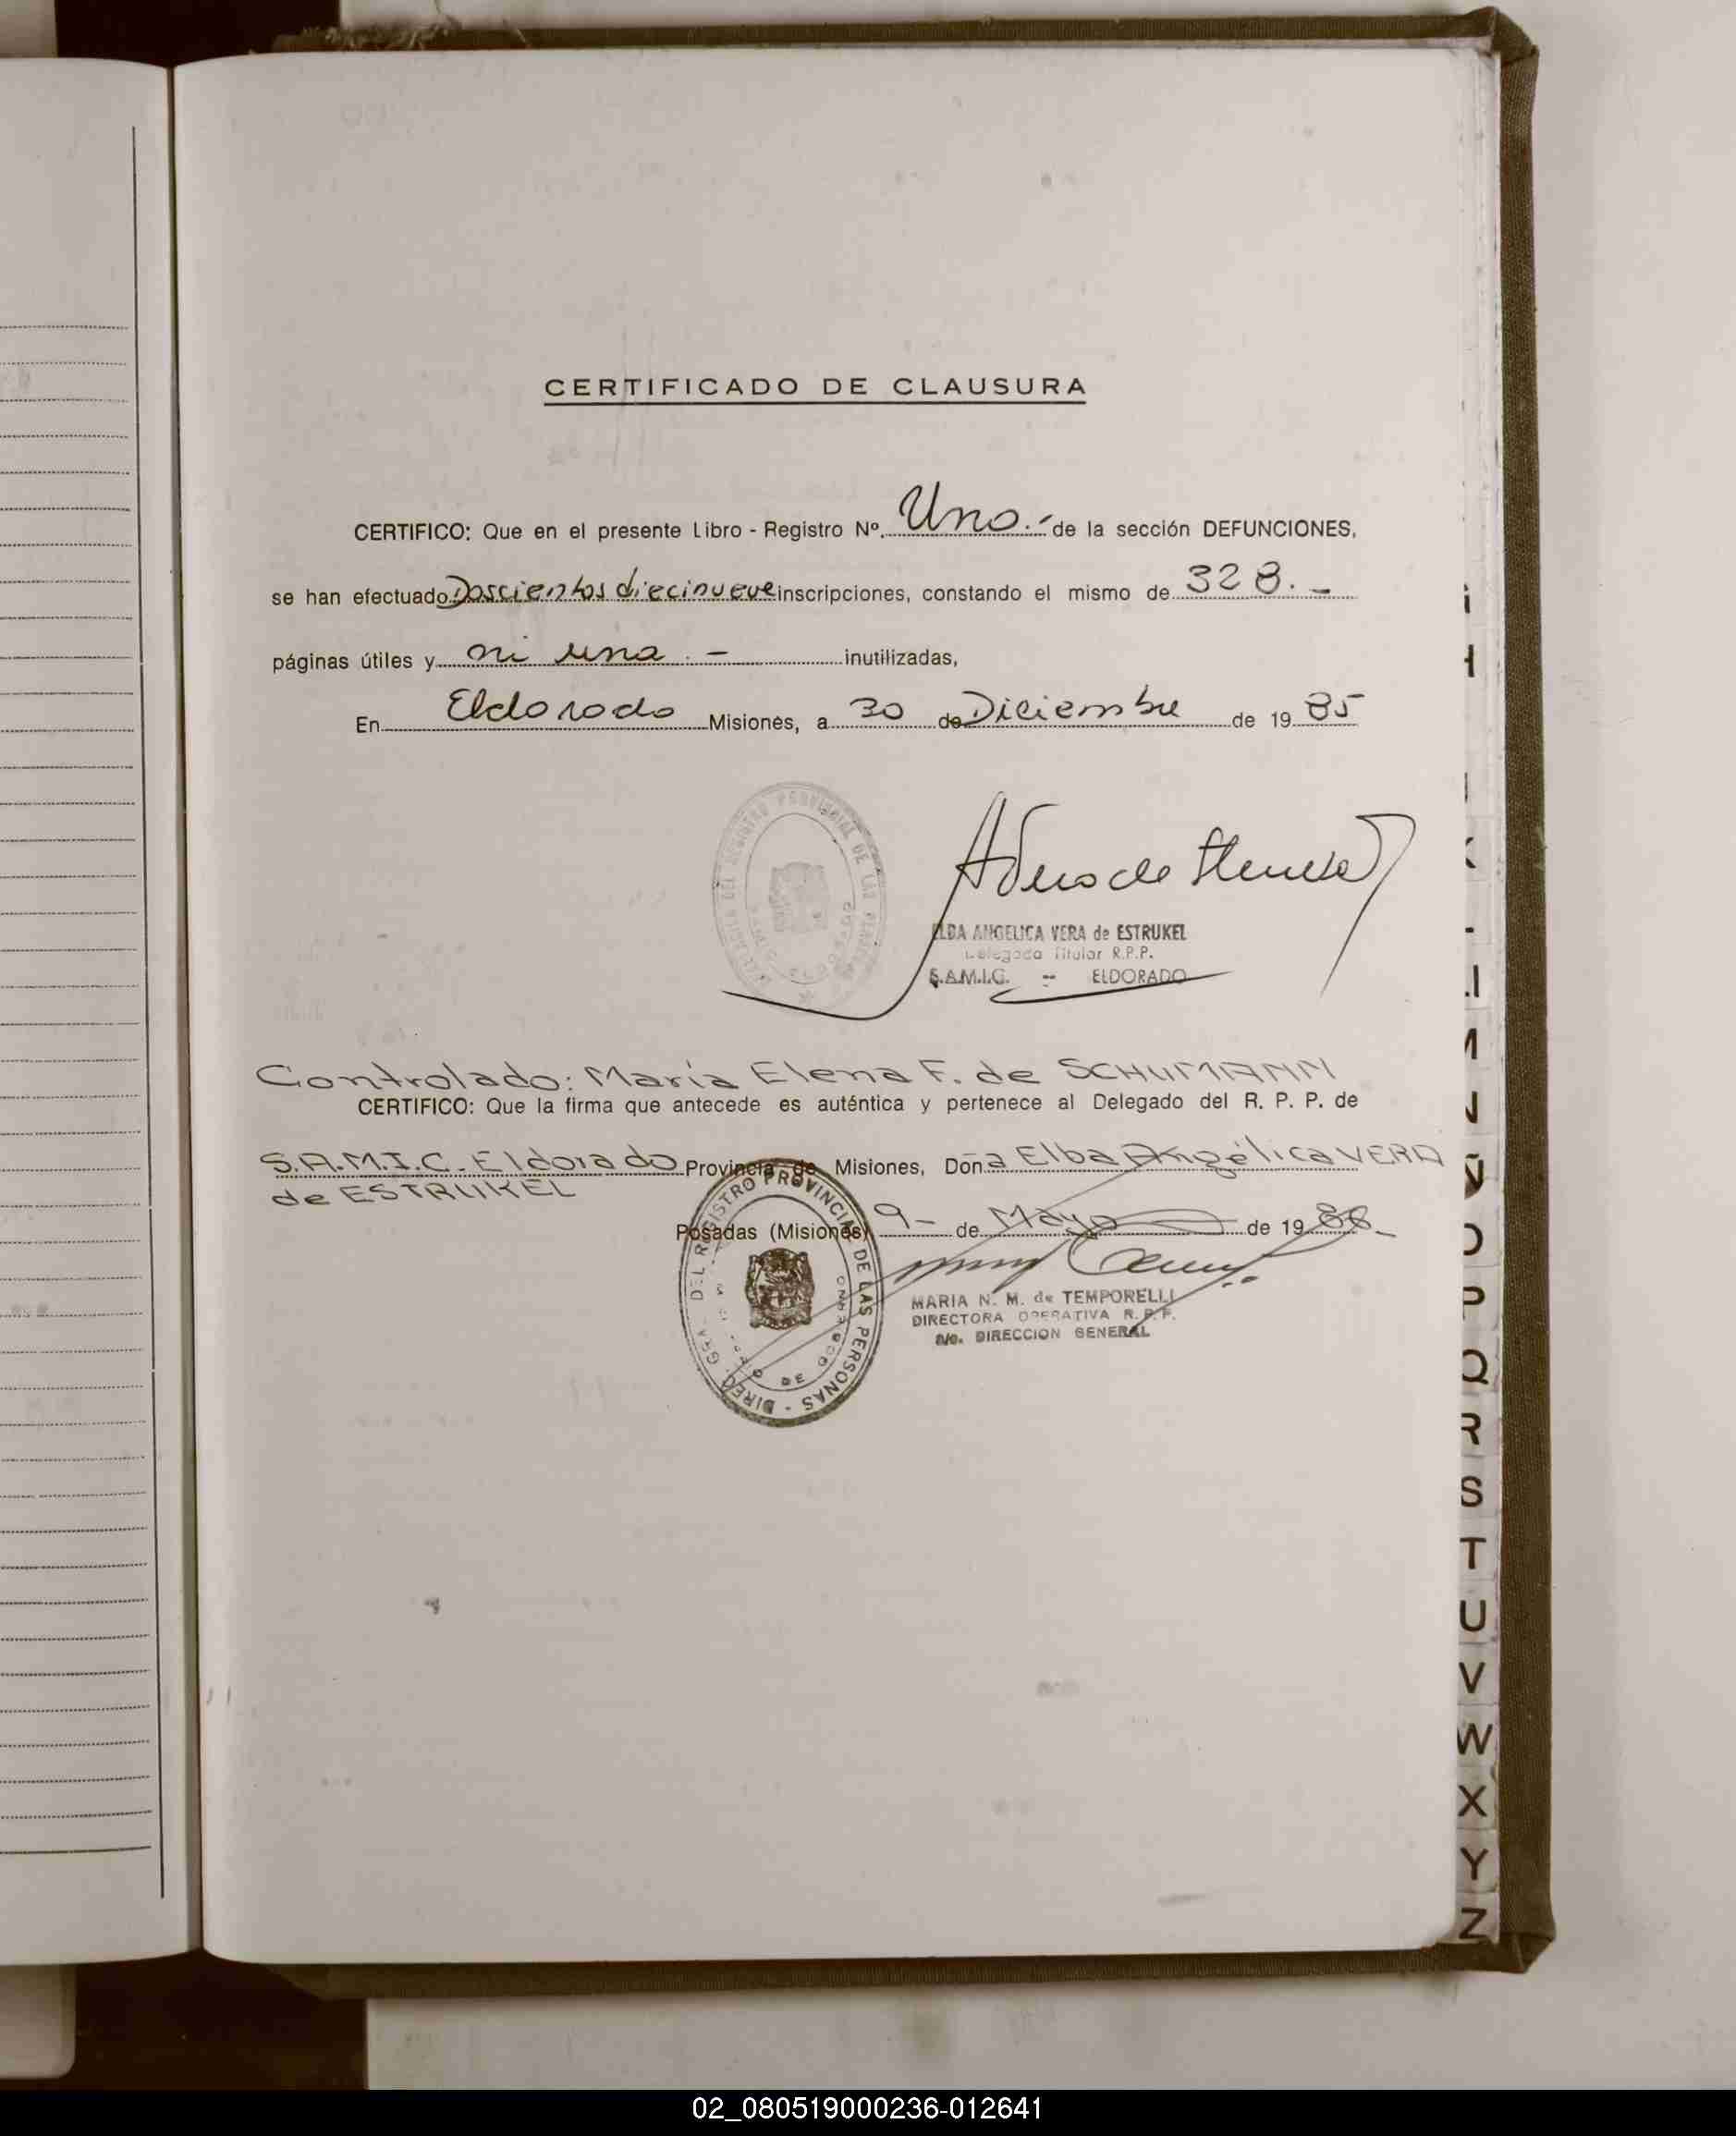 CERTIFICADO DE CLAUSURA
CERTIFICO: Que en el presente Libro - Registro Nº. Uno.- de la sección DEFUNCIONES,
se han efectuado Doscientos diecinueve inscripciones, constando el mismo de 328. -
páginas útiles y ni una. - inutilizadas,
En Eldorado Misiones, a 30 de Diciembre de 19 85
ELBA ANGELICA VERA de ESTRUKEL
Delegada Titular R.P.P.
S.A.M.I.C. -- ELDORADO
Controlado: María Elena F. de SCHUMANN
CERTIFICO: Que la firma que antecede es auténtica y pertenece al Delegado del R. P. P. de
S.A.M.I.C. - Eldorado Provincia de Misiones, Doña Elba Angélica VERA
de ESTRUKEL
Posadas (Misiones) 9- de Mayo de 19 86-
DIREC. GRAL. DEL REGISTRO PROVINCIAL DE LAS PERSONAS -
MARIA N. M. de TEMPORELLI
DIRECTORA OPERATIVA R. P. P.
a/c. DIRECCION GENERAL
N
O
P
Q
R
S
T
U
V
W
X
Y
Z
02_080519000236-012641